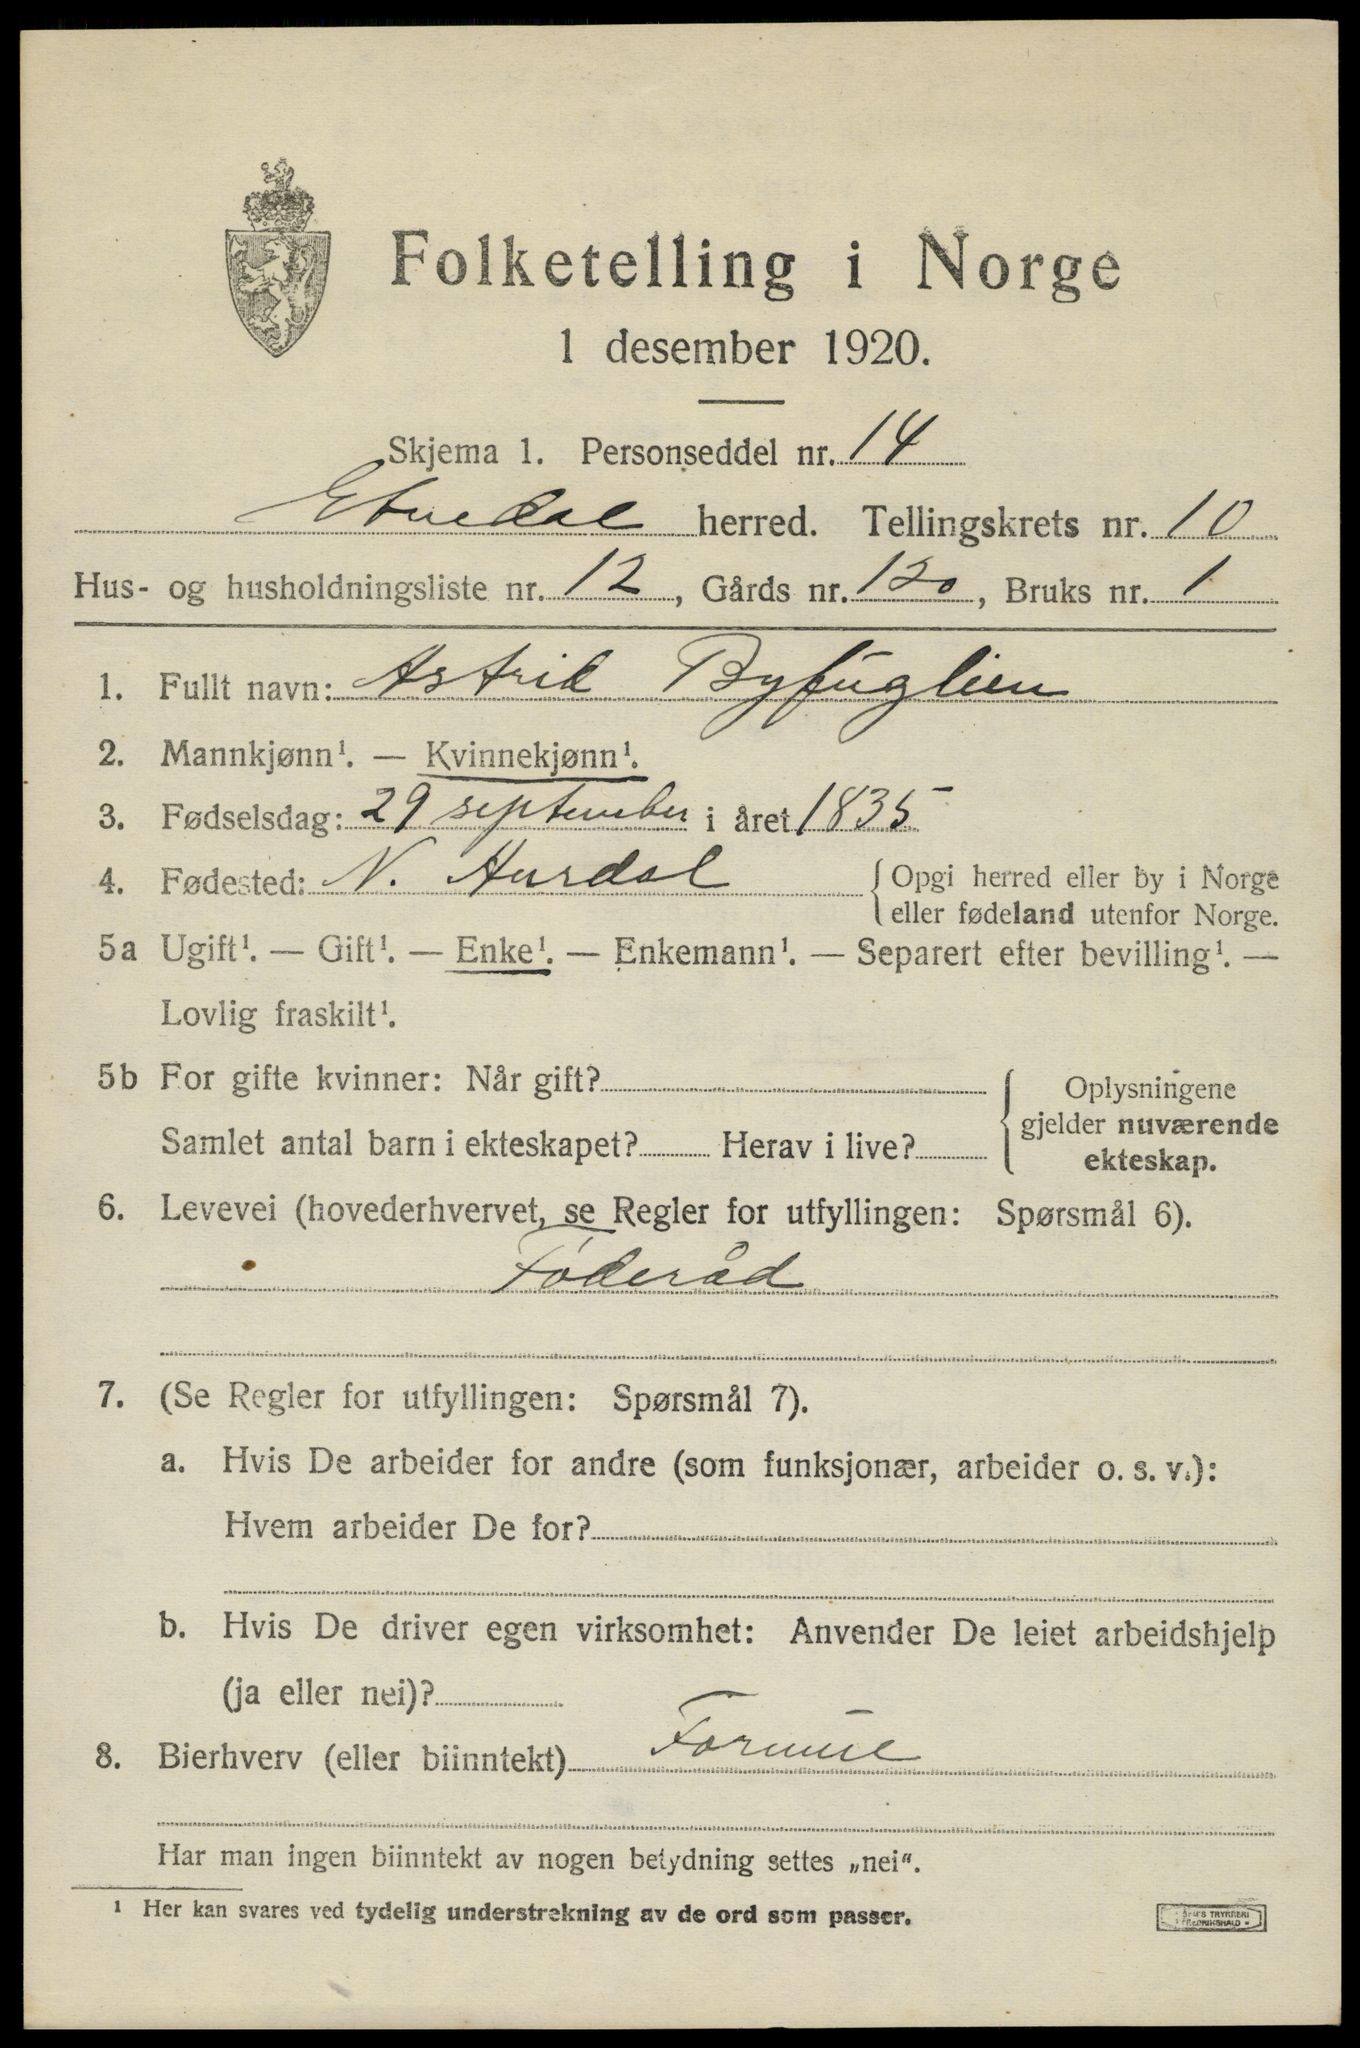 Folketelling i Norge
1 desember 1920.
Skjema 1. Personseddel nr. 14
Etnedal herred. Tellingskrets nr. 10
Hus- og husholdningsliste nr. 12, Gårds nr. 120, Bruks nr. 1
1. Fullt navn: Astrid Byfuglien
2. Mannkjønn¹. — Kvinnekjønn¹.
3. Fødselsdag: 29 september i året 1835
4. Fødested: N. Aurdal { Opgi herred eller by i Norge
eller fødeland utenfor Norge.
5a Ugift¹. — Gift¹. — Enke¹. — Enkemann¹. — Separert efter bevilling¹. —
Lovlig fraskilt¹.
5b For gifte kvinner: Når gift?
Samlet antal barn i ekteskapet? Herav i live?
Oplysningene
gjelder nuværende
ekteskap.
6. Levevei (hovederhvervet, se Regler for utfyllingen: Spørsmål 6).
Føderåd
7. (Se Regler for utfyllingen: Spørsmål 7).
a. Hvis De arbeider for andre (som funksjonær, arbeider o. s. v.):
Hvem arbeider De for?
b. Hvis De driver egen virksomhet: Anvender De leiet arbeidshjelp
(ja eller nei)?
8. Bierhverv (eller biinntekt) Formue
Har man ingen biinntekt av nogen betydning settes „nei".
¹ Her kan svares ved tydelig understrekning av de ord som passer.
TRYKKERI
FREDRIKSHALD